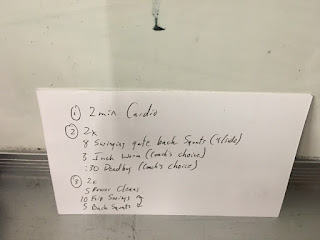 ① 2 min Cardio
② 2x
8 Swinging gate back Squats (4/side)
3 Inch Worm (Coach's choice)
:30 Deadbug (Coach's choice)
③ 2x
5 Power Cleans
10 Kip Swings
5 Back Squats